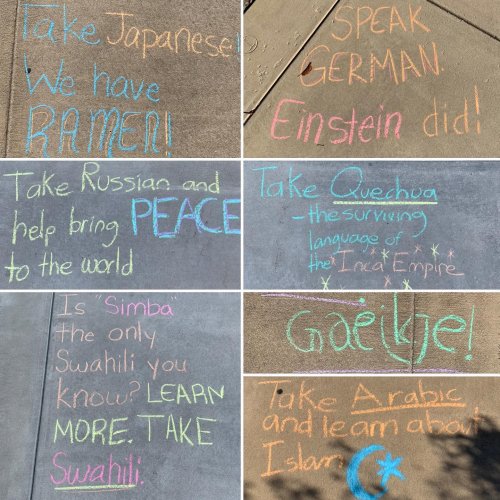 Take Japanese!
We have
RAMEN!
SPEAK
GERMAN.
Einstein did!
Take Russian and
help bring PEACE
to the world
Take Quechua
- the surviving
language of
the Inca Empire
Is "Simba"
the only
Swahili you
know? LEARN
MORE. TAKE
Swahili.
Take Arabic
and learn about
Islam